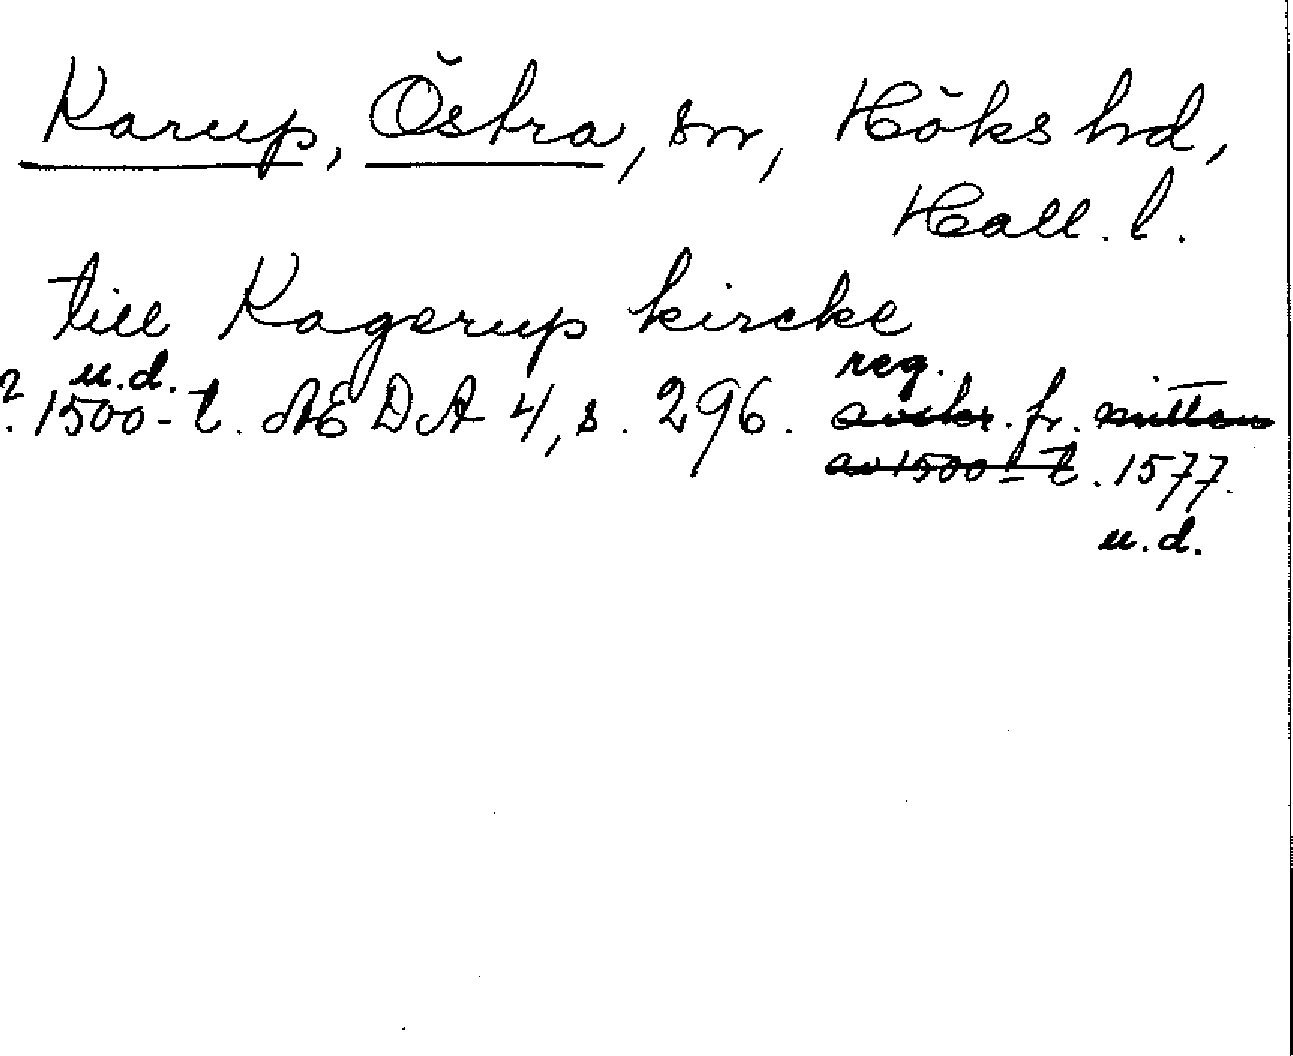 Karup, Östra, sn, Höks hd,
Hall. l.
till Kagerup kircke
u.d. reg.
? 1500-t. AEDA 4, s. 296. avskr. fr. mitten
av 1500-t. 1577.
u.d.